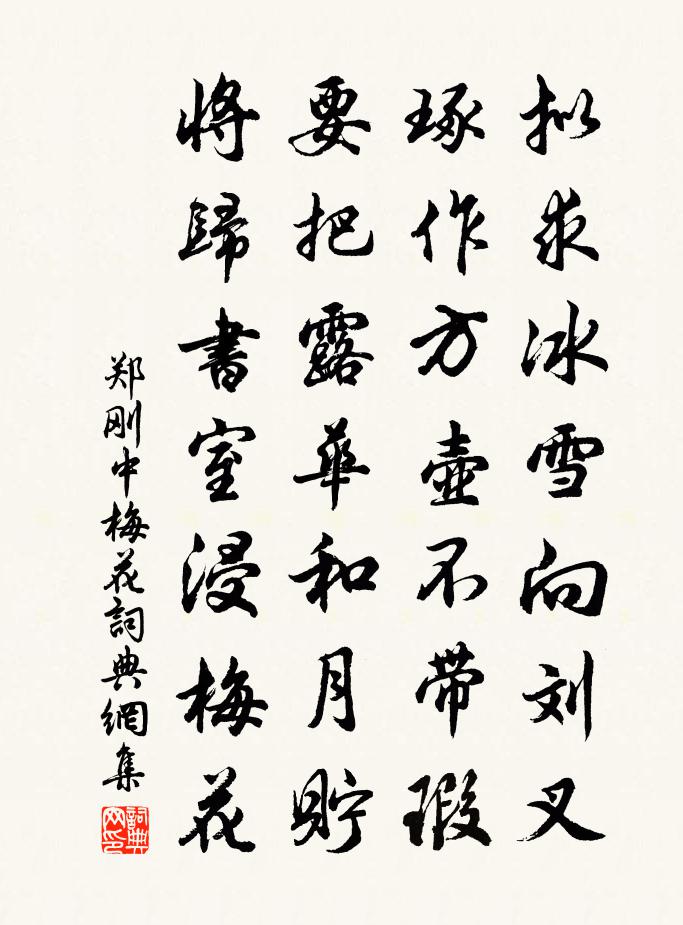 拟求冰雪向刘叉
琢作方壶不带瑕
要把露華和月貯
将歸書室浸梅花
郑刚中梅花詞典網集
詞典网印